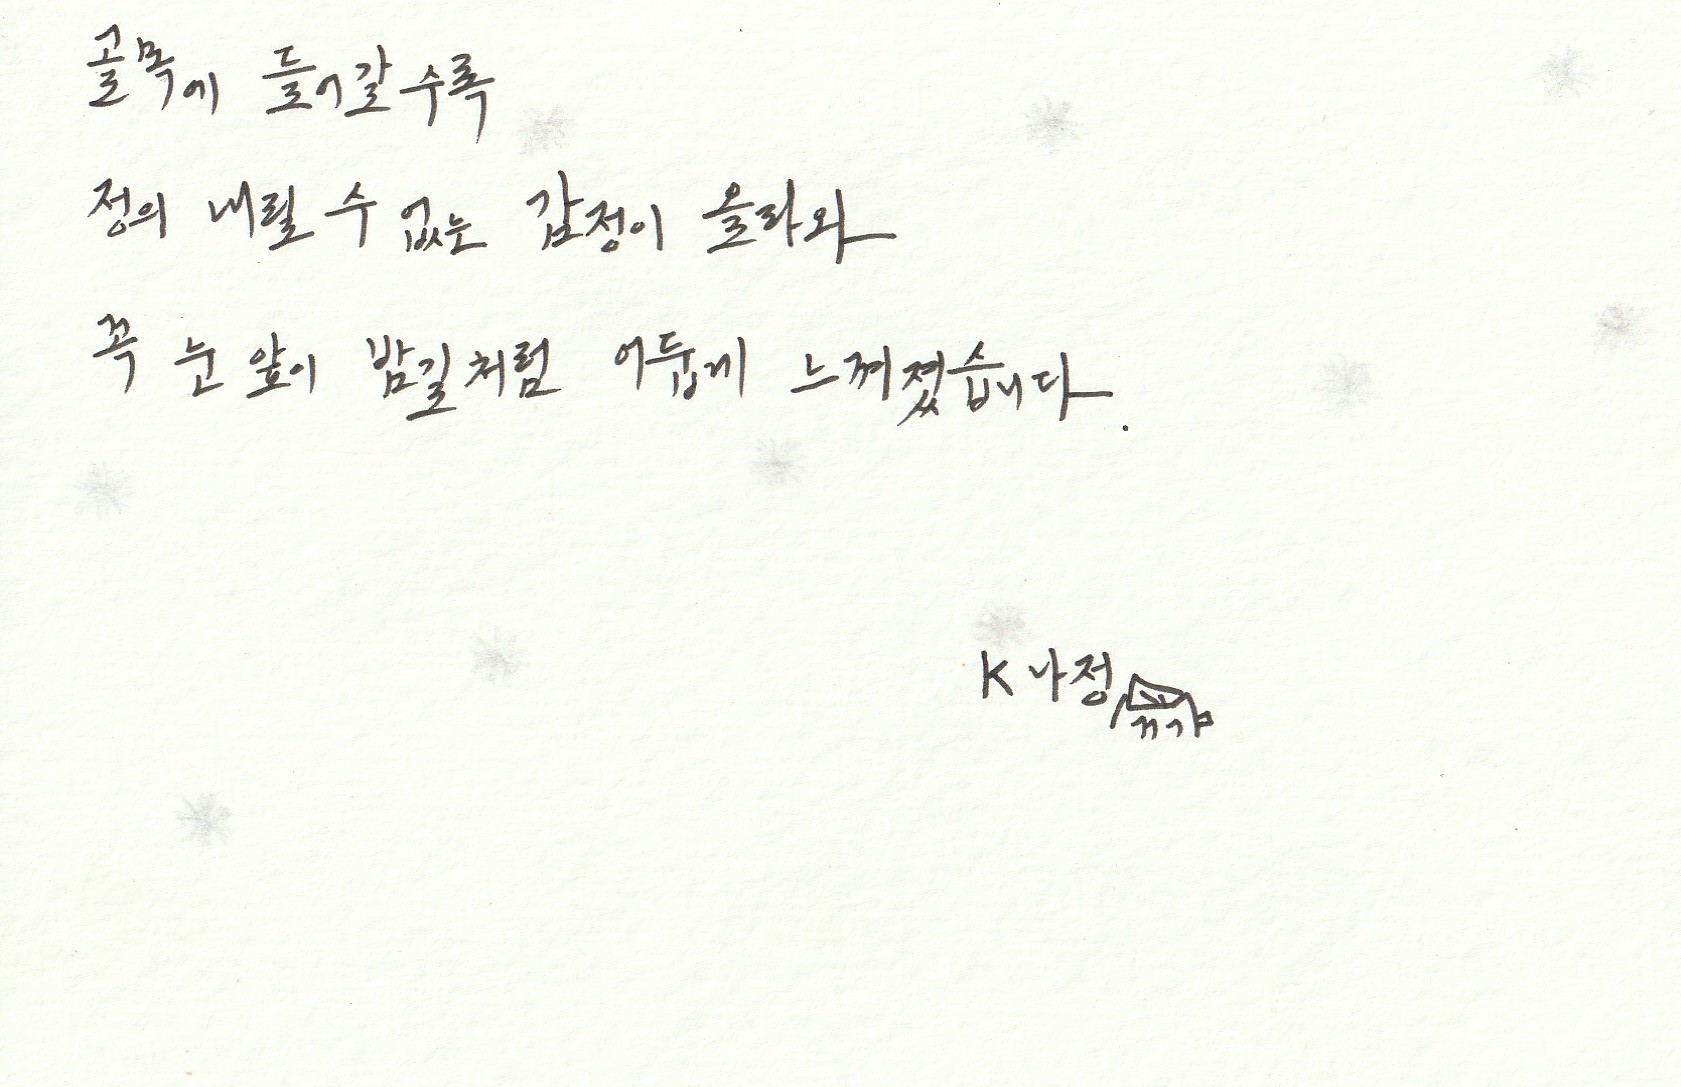 골목에 들어갈수록
정의 내릴 수 없는 감정이 올라와
꼭 눈 앞이 밤길처럼 어둡게 느껴졌습니다.
K 나정